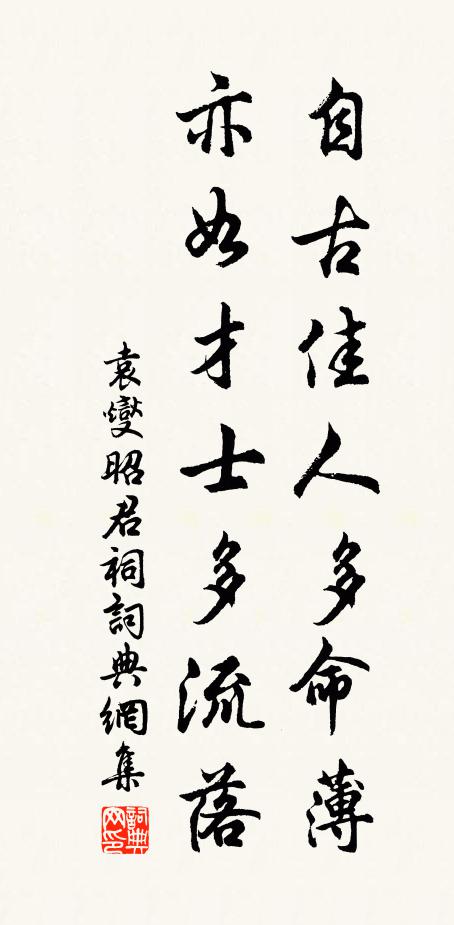 自古佳人多命薄
亦如才士多流落
袁燮昭君祠詞典網集
詞典網印